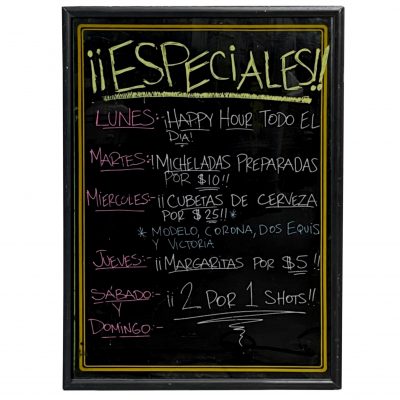 ¡¡ESPECIALES!!
LUNES:- ¡HAPPY HOUR TODO EL
DIA!
MARTES:- ¡MICHELADAS PREPARADAS
POR $10!!
MIERCOLES:- ¡¡CUBETAS DE CERVEZA
POR $25!! *
* MODELO, CORONA, DOS EQUIS
Y VICTORIA
JUEVES:- ¡¡MARGARITAS POR $5!!
SÁBADO:- ¡¡ 2 POR 1 SHOTS!!
Y
DOMINGO:-